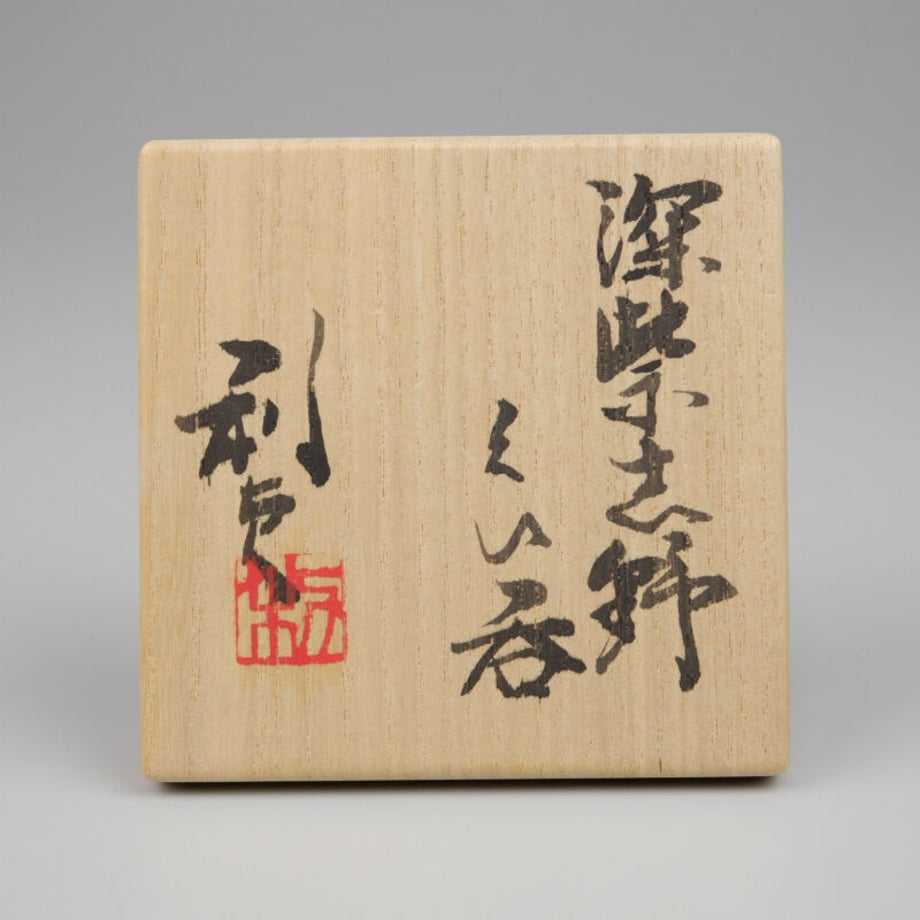 深紫志野
ぐい呑
利